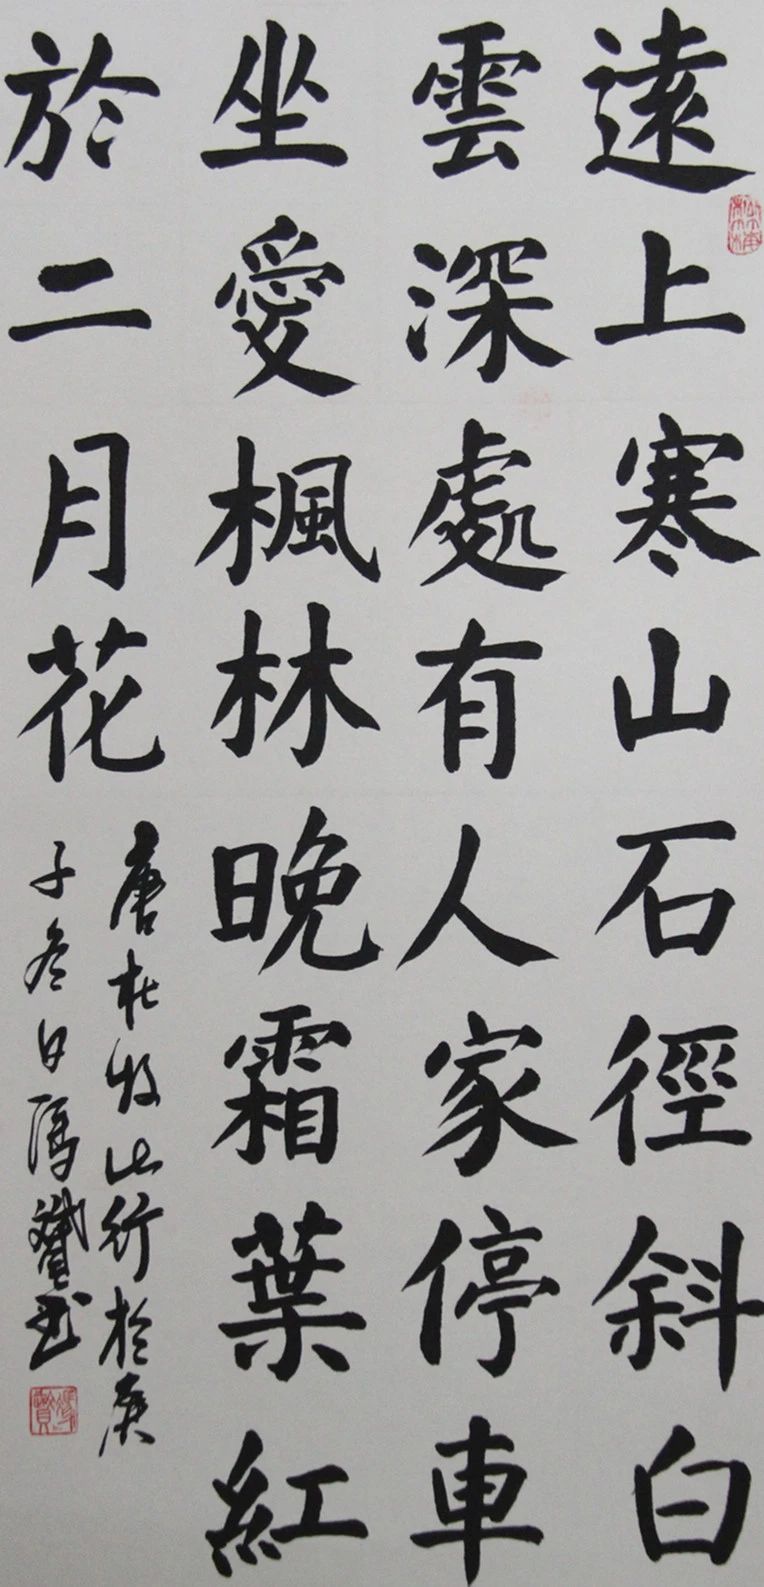 遠上寒山石徑斜白
雲深處有人家停車
坐愛楓林晚霜葉紅
於二月花
唐杜牧山行於庚
子冬日馮贇书